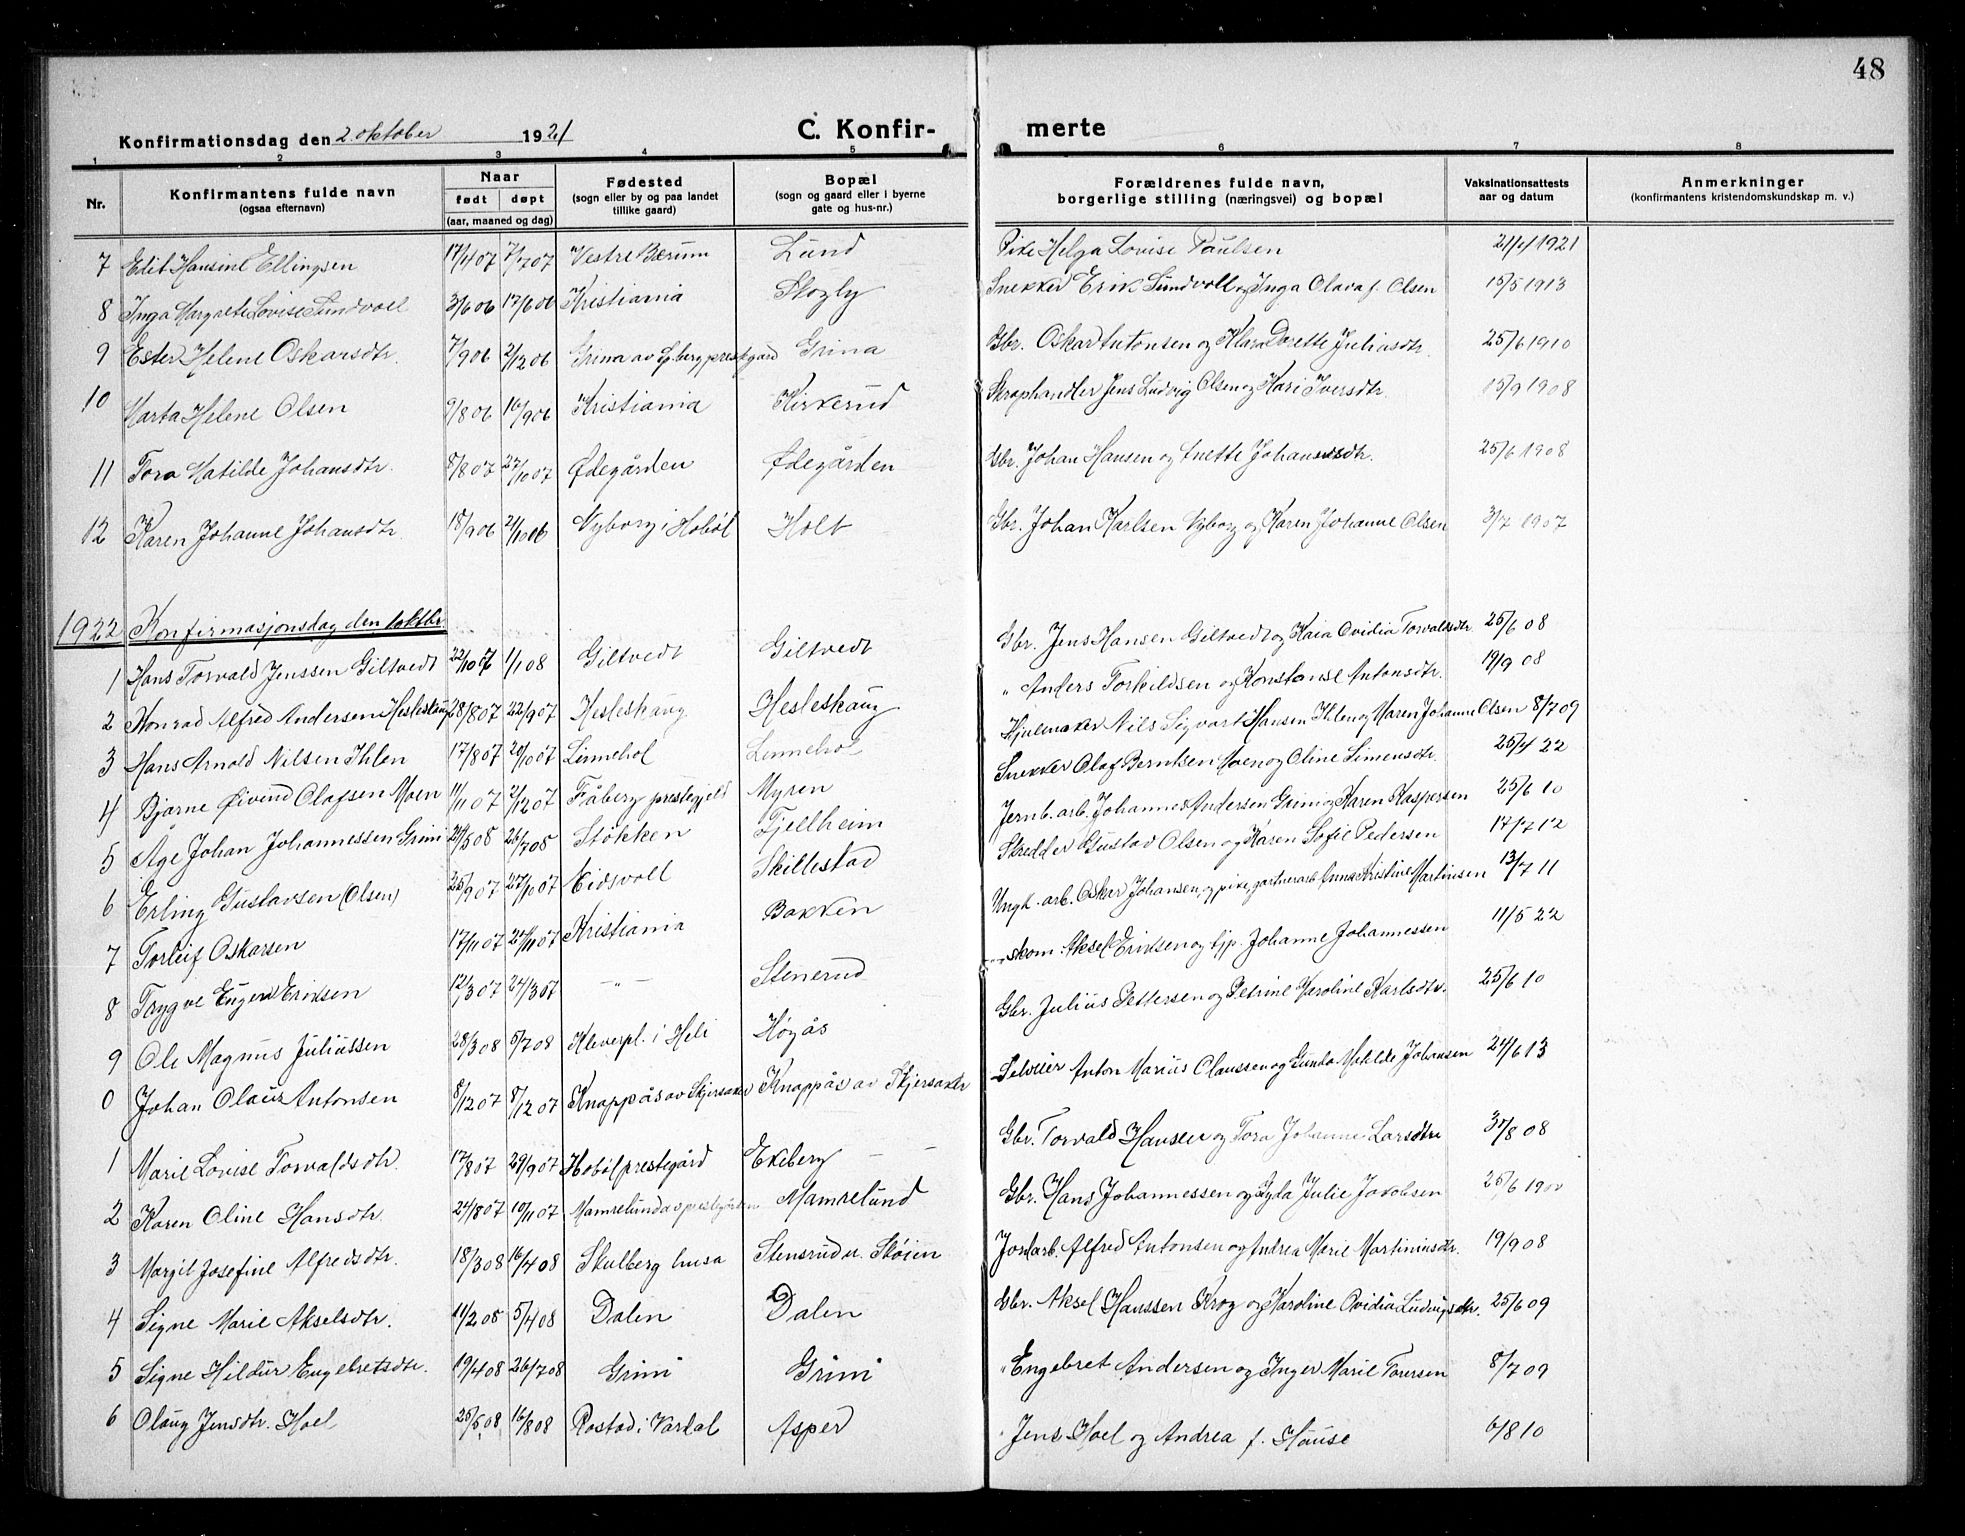 48
Konfirmationsdag den 2. oktober 1921 C. Konfirmerte
1 2 3 4 5 6 7 8
Nr. Konfirmantens fulde navn (ogsaa efternavn) Naar født døpt (aar, maaned og dag) Fødested (sogn eller by og paa landet tillike gaard) Bopæl (sogn og gaard eller i byerne gate og hus-nr.) Forældrenes fulde navn, borgerlige stilling (næringsvei) og bopæl Vaksinationsattests aar og datum Anmerkninger (konfirmantens kristendomskundskap m. v.)
7 Edit Hansine Ellingsen 17/4 07 7/7 07 Vestre Bærum Lund Pike Helga Lovise Paulsen 21/4 1921
8 Inga Margrete Lovise Sundvoll 3/6 06 17/6 06 Kristiania Skogly Snekker Erik Sundvoll og Inga Olava f. Olsen 15/5 1913
9 Ester Helene Oskarsdtr. 7/9 06 2/12 06 Grina av Spberg prestegård Grina Gbr. Oskar Antonsen og Klara Dorette Juliusdtr. 25/6 1910
10 Marta Helene Olsen 9/8 06 16/9 06 Kristiania Kirkerud Skraphandler Jens Ludvig Olsen og Kari Iversdtr 15/9 1908
11 Tora Matilde Johansdtr. 8/8 07 27/10 07 Ødegården Ødegården Gbr. Johan Hansen og Anette Johannesdtr. 25/6 1908
12 Karen Johanne Johansdtr. 18/9 06 21/10 06 Nyborg i Hobøl Holt Gbr. Johan Karlsen Nyborg og Karen Johanne Olsen 3/7 1907
1922 Konfirmasjonsdag den 1 oktbr.
1 Hans Torvald Jenssen Giltvedt 22/10 07 1/1 08 Giltvedt Giltvedt Gbr. Jens Hansen Giltvedt og Kaia Ovidia Torvaldsdtr. 25/6 08
2 Konrad Alfred Andersen Hesleskaug 28/8 07 22/9 07 Hesleskaug Hesleskaug " Anders Torkildsen og Konstanse Antonsdtr. 19/9 08
3 Hans Arnold Nilsen Ihlen 17/8 07 20/10 07 Linnehol Linnehol Hjulemaker Nils Sigvart Hansen Ihlen og Maren Johanne Olsen 8/7 09
4 Bjarne Øivind Olafsen Moen 11/11 07 2/12 07 Fåberg prestegjeld Myren Snekker Olaf Berntsen Moen og Oline Simensdtr. 25/4 22
5 Åge Johan Johannessen Grini 24/5 08 26/7 08 Støkken Fjellheim Jernb. arb. Johannes Andersen Grini og Karen Kaspersen 25/6 10
6 Erling Gustavsen (Olsen) 25/9 07 27/10 07 Eidsvoll Skillestad Skredder Gustav Olsen og Karen Sofie Pedersen 17/7 12
7 Torleif Oskarsen 17/11 07 27/11 07 Kristiania Bakken Ungk. arb. Oskar Johansen, og pike, gartnerarb. Anna Kristine Martinsen 13/7 11
8 Trygve Eugen Eriksen 12/3 07 24/3 07 — " — Stenerud skom. Aksel Eriksen og tjp. Johanne Johannessen 11/5 22
9 Ole Magnus Juliussen 28/3 08 5/7 08 Kleverpl. i Heli Høgås Gbr. Julius Pettersen og Petrine Karoline Karlsdtr. 25/6 10
0 Johan Olaus Antonsen 8/12 07 8/12 07 Knappås av Skjersaker Knappås av Skjersaker Selveier Anton Marius Claussen og Gunda Matilde Johansen 24/6 13
1 Marie Lovise Torvaldsdtr. 17/8 07 29/9 07 Hobøl prestegård Ekeberg — — Gbr. Torvald Hansen og Tora Johanne Larsdtr 31/8 08
2 Karen Oline Hansdtr. 24/8 07 10/11 07 Mamrelund av prestegården Mamrelund Gbr. Hans Johannessen og Gyda Julie Jakobsen 25/6 1900
3 Margit Josefine Alfredsdtr. 18/3 08 16/4 08 Skulberg husa Stensrud u. Skøien Jordarb. Alfred Antonsen og Andrea Marie Martiniusdtr. 19/9 08
4 Signe Marie Akselsdtr. 11/2 08 5/4 08 Dalen Dalen Gbr. Aksel Hanssen Krog og Karoline Ovidia Ludvigsdtr. 25/6 09
5 Signe Hildur Engebretsdtr. 19/4 08 26/7 08 Grini Grini " Engebret Andersen og Inger Marie Toresen 8/7 09
6 Olaug Jensdtr. Hoel 25/5 08 16/8 08 Rostad i Vardal Asper " Jens Hoel og Andrea f. Hause 6/8 10